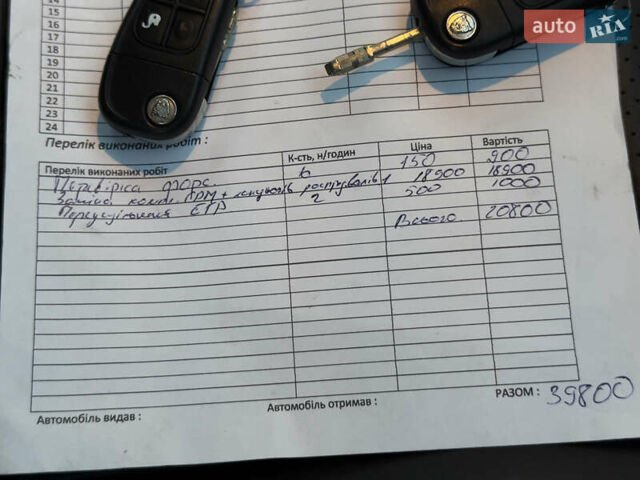 auto RIA .com
14
15
16
17
18
19
20
21
22
23
24
Перелік виконаних робіт :
Перелік виконаних робіт К-сть, н/годин Ціна Вартість
Перевірка форс. 6 150 900
Заміна комп. ГРМ + розпрвалів 1 18900 18900
2 500 1000
Всього. 20800
Автомобіль видав : Автомобіль отримав : РАЗОМ : 39800